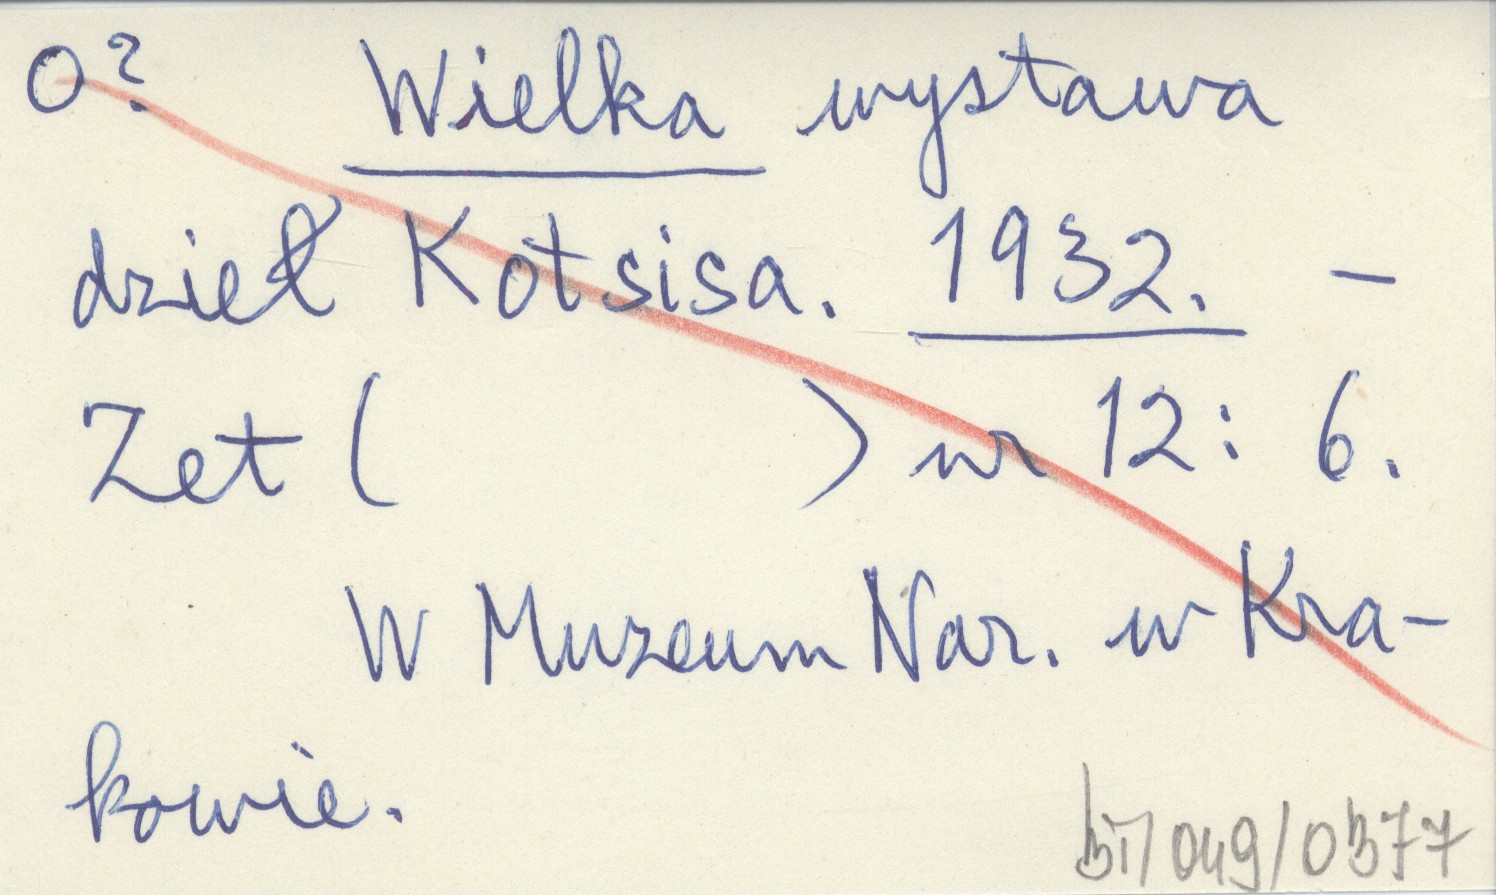 O? Wielka wystawa
dzieł Kotsisa. 1932. –
Zet ( ) nr 12: 6.
W Muzeum Nar. w Kra-
kowie.
/049/0377